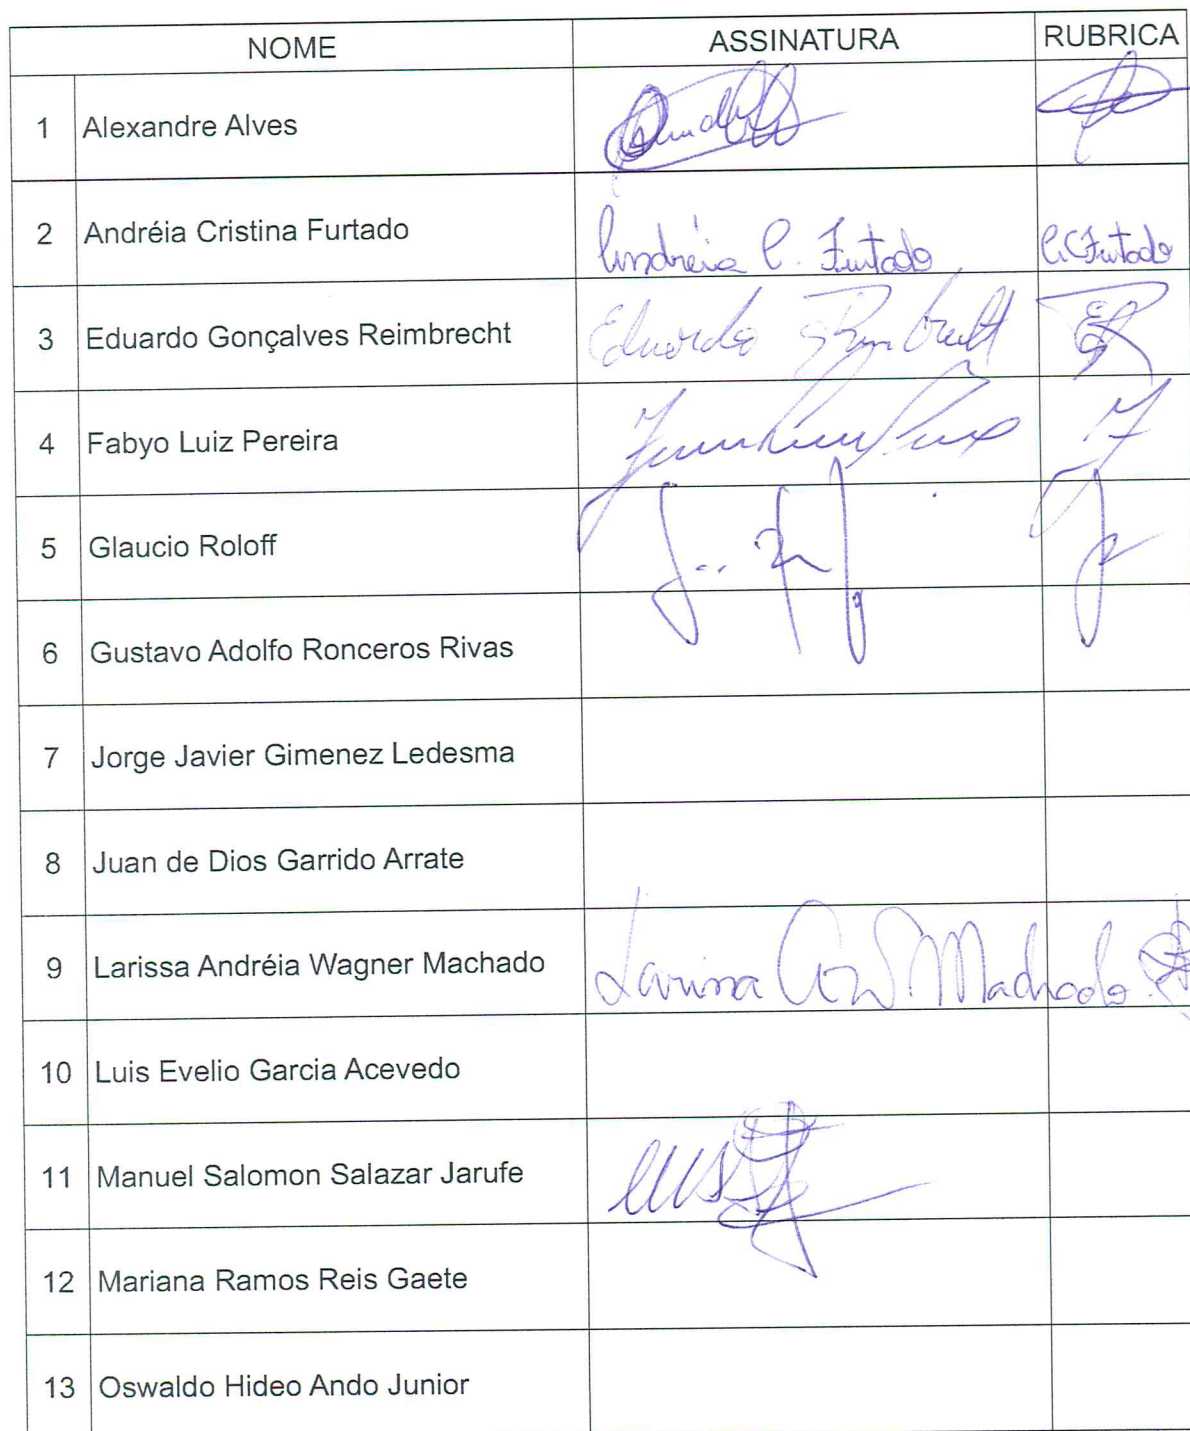 NOME ASSINATURA RUBRICA
1 Alexandre Alves
2 Andréia Cristina Furtado Andréia C. Furtado A.C.Furtado
3 Eduardo Gonçalves Reimbrecht Eduardo
4 Fabyo Luiz Pereira
5 Glaucio Roloff
6 Gustavo Adolfo Ronceros Rivas
7 Jorge Javier Gimenez Ledesma
8 Juan de Dios Garrido Arrate
9 Larissa Andréia Wagner Machado Larissa A. W. Machado
10 Luis Evelio Garcia Acevedo
11 Manuel Salomon Salazar Jarufe
12 Mariana Ramos Reis Gaete
13 Oswaldo Hideo Ando Junior